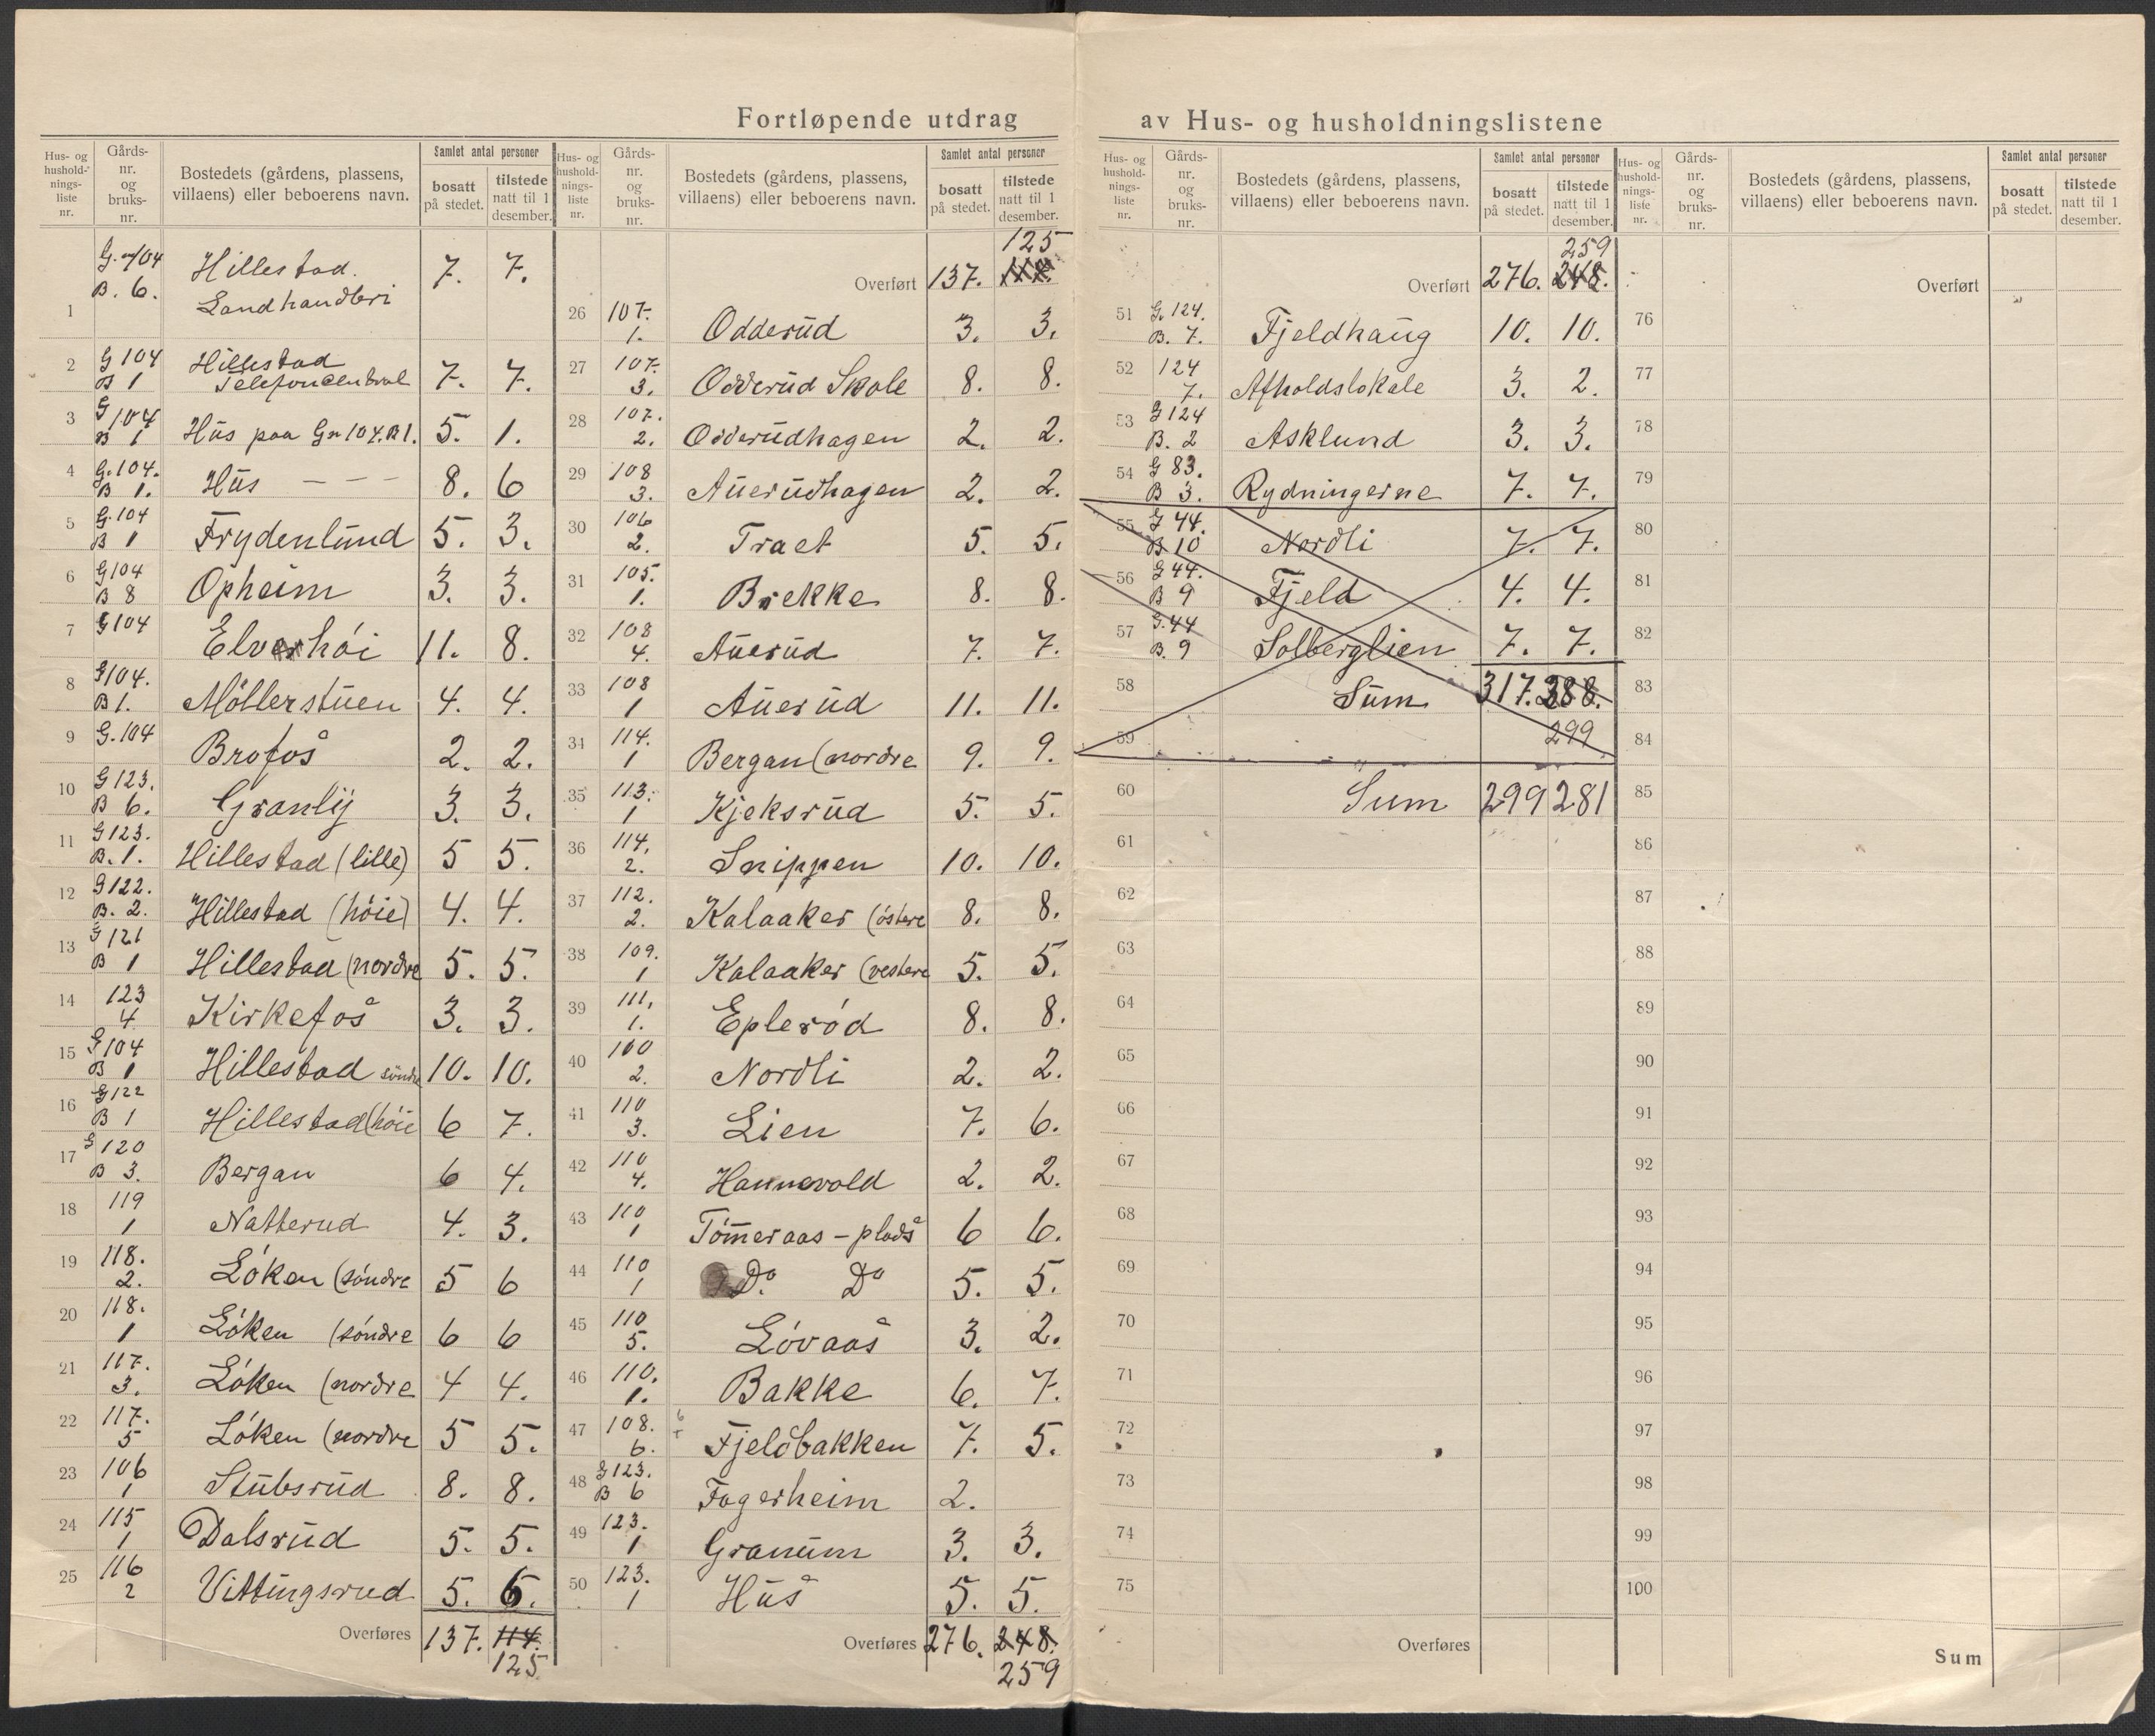 Fortløpende utdrag av Hus- og husholdningslistene
Hus- og hushold-nings-liste nr. | Gårds-nr. og bruks-nr. | Bostedets (gårdens, plassens, villaens) eller beboerens navn. | Samlet antal personer | bosatt på stedet. | tilstede natt til 1 desember.
1 G. nr 104 B. 6. Hillestad. Landhandleri 7. 7.
2 G 104 B 1 Hillestad Telefoncentral 7. 7.
3 G 104 B 1 Hüs paa Gn 104. B 1. 5. 1.
4 G. 104. B 1. Hüs — — — 8. 6
5 G. 104 B 1 Frydenlünd 5. 3.
6 G 104 B 8 Opheim 3. 3.
7 G 104 Elverhöi 11. 8.
8 G 104. B 1. Möllerstüen 4. 4.
9 G. 104 Brofos 2. 2.
10 G 123. B 6. Granlij 3. 3.
11 G 123. B. 1. Hillestad (lille) 5 5.
12 G 122. B. 2. Hillestad (höie) 4. 4.
13 G 121 B 1 Hillestad (nordre 5. 5.
14 123 4 Kirkefos 3. 3.
15 G 104 B 1 Hillestad söndre 10. 10.
16 G 122 B 1 Hillestad (höie 6 7.
17 G 120 B 3. Bergan 6 4.
18 119 1 Natterud 4. 3.
19 118. 2. Löken (söndre 5 6
20 118. 1 Löken (söndre 6 6
21 117. 3. Löken (nordre 4 4.
22 117. 5 Löken (nordre 5 5.
23 106 1 Stübsrüd 8. 8.
24 115 1 Dalsrüd 5. 5.
25 116 2 Vittingsrud 5. 6.
Overføres 137. 114. 125
Hus- og hushold-nings-liste nr. | Gårds-nr. og bruks-nr. | Bostedets (gårdens, plassens, villaens) eller beboerens navn. | Samlet antal personer | bosatt på stedet. | tilstede natt til 1 desember.
125
Overført 137.
26 107. 1. Odderüd 3. 3.
27 107. 3. Odderüd Skole 8. 8.
28 107. 2. Odderüdhagen 2. 2.
29 108 3. Aüerüdhagen 2. 2.
30 106 2. Traet 5. 5.
31 105. 1. Brekke 8. 8.
32 108 4. Aüerüd 7. 7.
33 108 1 Aüerüd 11. 11.
34 114. 1 Bergan (nordre 9. 9.
35 113. 1 Kjeksrüd 5. 5.
36 114. 2. Snippen 10. 10.
37 112. 2. Kalaaker (östere 8. 8.
38 109. 1 Kalaaker (vestere 5. 5.
39 111. 1. Epleröd 8. 8.
40 100 2. Nordli 2. 2.
41 110 3. Lien 7. 6.
42 110 4. Hannevold 2. 2.
43 110 1 Tömeraas - plads 6 6.
44 110 1 Do. Do 5. 5.
45 110 5. Lövaas 3. 2.
46 110. 1. Bakke 6. 7.
47 108. 6. Fjeldbakken 7. 5.
48 G 123. B 6 Fagerheim 2.
49 123. 1 Granüm 3. 3.
50 123. 1 Hüs 5. 5.
Overføres 276. 248. 259
Hus- og hushold-nings-liste nr. | Gårds-nr. og bruks-nr. | Bostedets (gårdens, plassens, villaens) eller beboerens navn. | Samlet antal personer | bosatt på stedet. | tilstede natt til 1 desember.
259
Overført 276. 248.
51 G. 124. B. 7. Fjeldhaüg 10. 10.
52 124 7. Afholdslokale 3. 2.
53 G 124 B. 2 Asklund 3. 3.
54 G 83. B 3. Rydningerne 7. 7.
55 G 44. B 10 Nordli 7. 7.
56 G 44. B 9 Fjeld 4. 4.
57 G. 44 B. 9 Solberglien 7. 7.
58 Süm 317. 288.
59 299
60 Süm 299 281
61
62
63
64
65
66
67
68
69
70
71
72
73
74
75
Overføres
Hus- og hushold-nings-liste nr. | Gårds-nr. og bruks-nr. | Bostedets (gårdens, plassens, villaens) eller beboerens navn. | Samlet antal personer | bosatt på stedet. | tilstede natt til 1 desember.
Overført
76
77
78
79
80
81
82
83
84
85
86
87
88
89
90
91
92
93
94
95
96
97
98
99
100
Sum